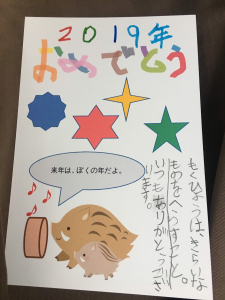 2019年
おめでとう
来年は、ぼくの年だよ。
もくひょうは、きらいな
ものをへらすこと
いつもありがとうござ
います。